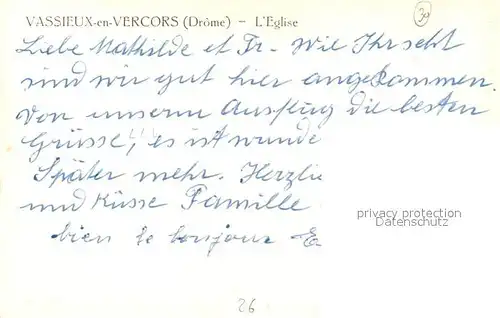 VASSIEUX-en-VERCORS (Drôme) – L'Eglise
30
Liebe Mathilde et Fr. Wie Ihr seht
sind wir gut hier angekommen.
Von unserm Ausflug die besten
Grüsse, es ist wunde
Später mehr. Herzli
und Küsse Famille
bien le bonjour E
privacy protection
Datenschutz
26